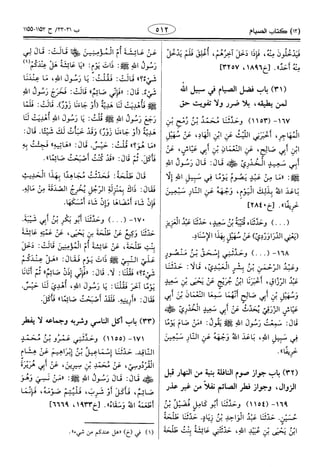 (١٣) كتاب الصيام
٥١٢
ب ٣١-٣٣/ ح ١١٥٣-١١٥٥
فَيَدْخُلُونَ مِنْهُ، فَإِذَا دَخَلَ آخِرُهُمْ، أُغْلِقَ فَلَمْ يَدْخُلْ
مِنْهُ أَحَدٌ». [خ١٨٩٦، ٣٢٥٧].
(٣١) باب فضل الصيام في سبيل الله
لمن يطيقه، بلا ضرر ولا تفويت حق
١٦٧- (١١٥٣) وحَدَّثَنَا مُحَمَّدُ بْنُ رُمْحِ بْنِ
الْمُهَاجِرِ، أَخْبَرَنِي اللَّيْثُ عَنِ ابْنِ الْهَادِ، عَنْ سُهَيْلِ
ابْنِ أَبِي صَالِحٍ، عَنِ النُّعْمَانِ بْنِ أَبِي عَيَّاشٍ، عَنْ
أَبِي سَعِيدٍ الْخُدْرِيِّ قَالَ: قَالَ رَسُولُ اللهِ
: «مَا مِنْ عَبْدٍ يَصُومُ يَوْمًا فِي سَبِيلِ اللهِ إِلَّا
بَاعَدَ اللهُ بِذَلِكَ الْيَوْمِ، وَجْهَهُ عَنِ النَّارِ سَبْعِينَ
خَرِيفًا». [خ٢٨٤٠].
(...) وحَدَّثَنَاه قُتَيْبَةُ بْنُ سَعِيدٍ، حَدَّثَنَا عَبْدُ الْعَزِيزِ
(يَعْنِي الدَّرَاوَرْدِيَّ) عَنْ سُهَيْلٍ بِهَذَا الإِسْنَادِ.
١٦٨- (...) وحَدَّثَنِي إِسْحَقُ بْنُ مَنْصُورٍ
وَعَبْدُ الرَّحْمَنِ بْنُ بِشْرٍ الْعَبْدِيُّ، قَالَا: حَدَّثَنَا
عَبْدُ الرَّزَّاقِ، أَخْبَرَنَا ابْنُ جُرَيْجٍ عَنْ يَحْيَى بْنِ سَعِيدٍ
وَسُهَيْلِ بْنِ أَبِي صَالِحٍ أَنَّهُمَا سَمِعَا النُّعْمَانَ بْنَ أَبِي
عَيَّاشٍ الزُّرَقِيَّ يُحَدِّثُ عَنْ أَبِي سَعِيدٍ الْخُدْرِيِّ
قَالَ: سَمِعْتُ رَسُولَ اللهِ يَقُولُ: «مَنْ صَامَ يَوْمًا
فِي سَبِيلِ اللهِ، بَاعَدَ اللهُ وَجْهَهُ عَنِ النَّارِ سَبْعِينَ
خَرِيفًا».
(٣٢) باب جواز صوم النافلة بنية من النهار قبل
الزوال، وجواز فطر الصائم نفلاً من غير عذر
١٦٩- (١١٥٤) وحَدَّثَنَا أَبُو كَامِلٍ فُضَيْلُ بْنُ
حُسَيْنٍ، حَدَّثَنَا عَبْدُ الْوَاحِدِ بْنُ زِيَادٍ، حَدَّثَنَا طَلْحَةُ
ابْنُ يَحْيَى بْنِ عُبَيْدِ اللهِ، حَدَّثَتْنِي عَائِشَةُ بِنْتُ طَلْحَةَ
عَنْ عَائِشَةَ أُمِّ الْمُؤْمِنِينَ قَالَتْ: قَالَ لِي
رَسُولُ اللهِ ذَاتَ يَوْمٍ: «يَا عَائِشَةُ هَلْ عِنْدَكُمْ(١)
شَيْءٌ؟» قَالَتْ: فَقُلْتُ: يَا رَسُولَ اللهِ، مَا عِنْدَنَا
شَيْءٌ. قَالَ: «فَإِنِّي صَائِمٌ» قَالَتْ: فَخَرَجَ رَسُولُ اللهِ
فَأُهْدِيَتْ لَنَا هَدِيَّةٌ (أَوْ جَاءَنَا زَوْرٌ). قَالَتْ: فَلَمَّا
رَجَعَ رَسُولُ اللهِ قُلْتُ: يَا رَسُولَ اللهِ أُهْدِيَتْ لَنَا
هَدِيَّةٌ (أَوْ جَاءَنَا زَوْرٌ) وَقَدْ خَبَأْتُ لَكَ شَيْئًا. قَالَ:
«مَا هُوَ؟» قُلْتُ: حَيْسٌ. قَالَ: «هَاتِيهِ» فَجِئْتُ بِهِ
فَأَكَلَ. ثُمَّ قَالَ: «قَدْ كُنْتُ أَصْبَحْتُ صَائِمًا».
قَالَ طَلْحَةُ: فَحَدَّثْتُ مُجَاهِدًا بِهَذَا الْحَدِيثِ
فَقَالَ: ذَاكَ بِمَنْزِلَةِ الرَّجُلِ يُخْرِجُ الصَّدَقَةَ مِنْ مَالِهِ.
فَإِنْ شَاءَ أَمْضَاهَا وَإِنْ شَاءَ أَمْسَكَهَا.
١٧٠- (...) وحَدَّثَنَا أَبُو بَكْرِ بْنُ أَبِي شَيْبَةَ.
حَدَّثَنَا وَكِيعٌ عَنْ طَلْحَةَ بْنِ يَحْيَى، عَنْ عَمَّتِهِ عَائِشَةَ
بِنْتِ طَلْحَةَ، عَنْ عَائِشَةَ أُمِّ الْمُؤْمِنِينَ قَالَتْ: دَخَلَ
عَلَيَّ النَّبِيُّ ذَاتَ يَوْمٍ فَقَالَ: «هَلْ عِنْدَكُمْ
شَيْءٌ؟» فَقُلْنَا: لَا. قَالَ: «فَإِنِّي إِذَنْ صَائِمٌ» ثُمَّ أَتَانَا
يَوْمًا آخَرَ فَقُلْنَا: يَا رَسُولَ اللهِ، أُهْدِيَ لَنَا حَيْسٌ.
فَقَالَ: «أَرِينِيهِ. فَلَقَدْ أَصْبَحْتُ صَائِمًا» فَأَكَلَ.
(٣٣) باب أكل الناسي وشربه وجماعه لا يفطر
١٧١- (١١٥٥) وحَدَّثَنِي عَمْرُو بْنُ مُحَمَّدٍ
النَّاقِدُ. حَدَّثَنَا إِسْمَاعِيلُ بْنُ إِبْرَاهِيمَ عَنْ هِشَامٍ
الْقُرْدُوسِيِّ، عَنْ مُحَمَّدِ بْنِ سِيرِينَ، عَنْ أَبِي هُرَيْرَةَ
قَالَ: قَالَ رَسُولُ اللهِ : «مَنْ نَسِيَ وَهُوَ
صَائِمٌ، فَأَكَلَ أَوْ شَرِبَ، فَلْيُتِمَّ صَوْمَهُ، فَإِنَّمَا
أَطْعَمَهُ اللهُ وَسَقَاهُ». [خ١٩٣٣، ٦٦٦٩].
(١) في (خ) «هل عندكم من شيء».